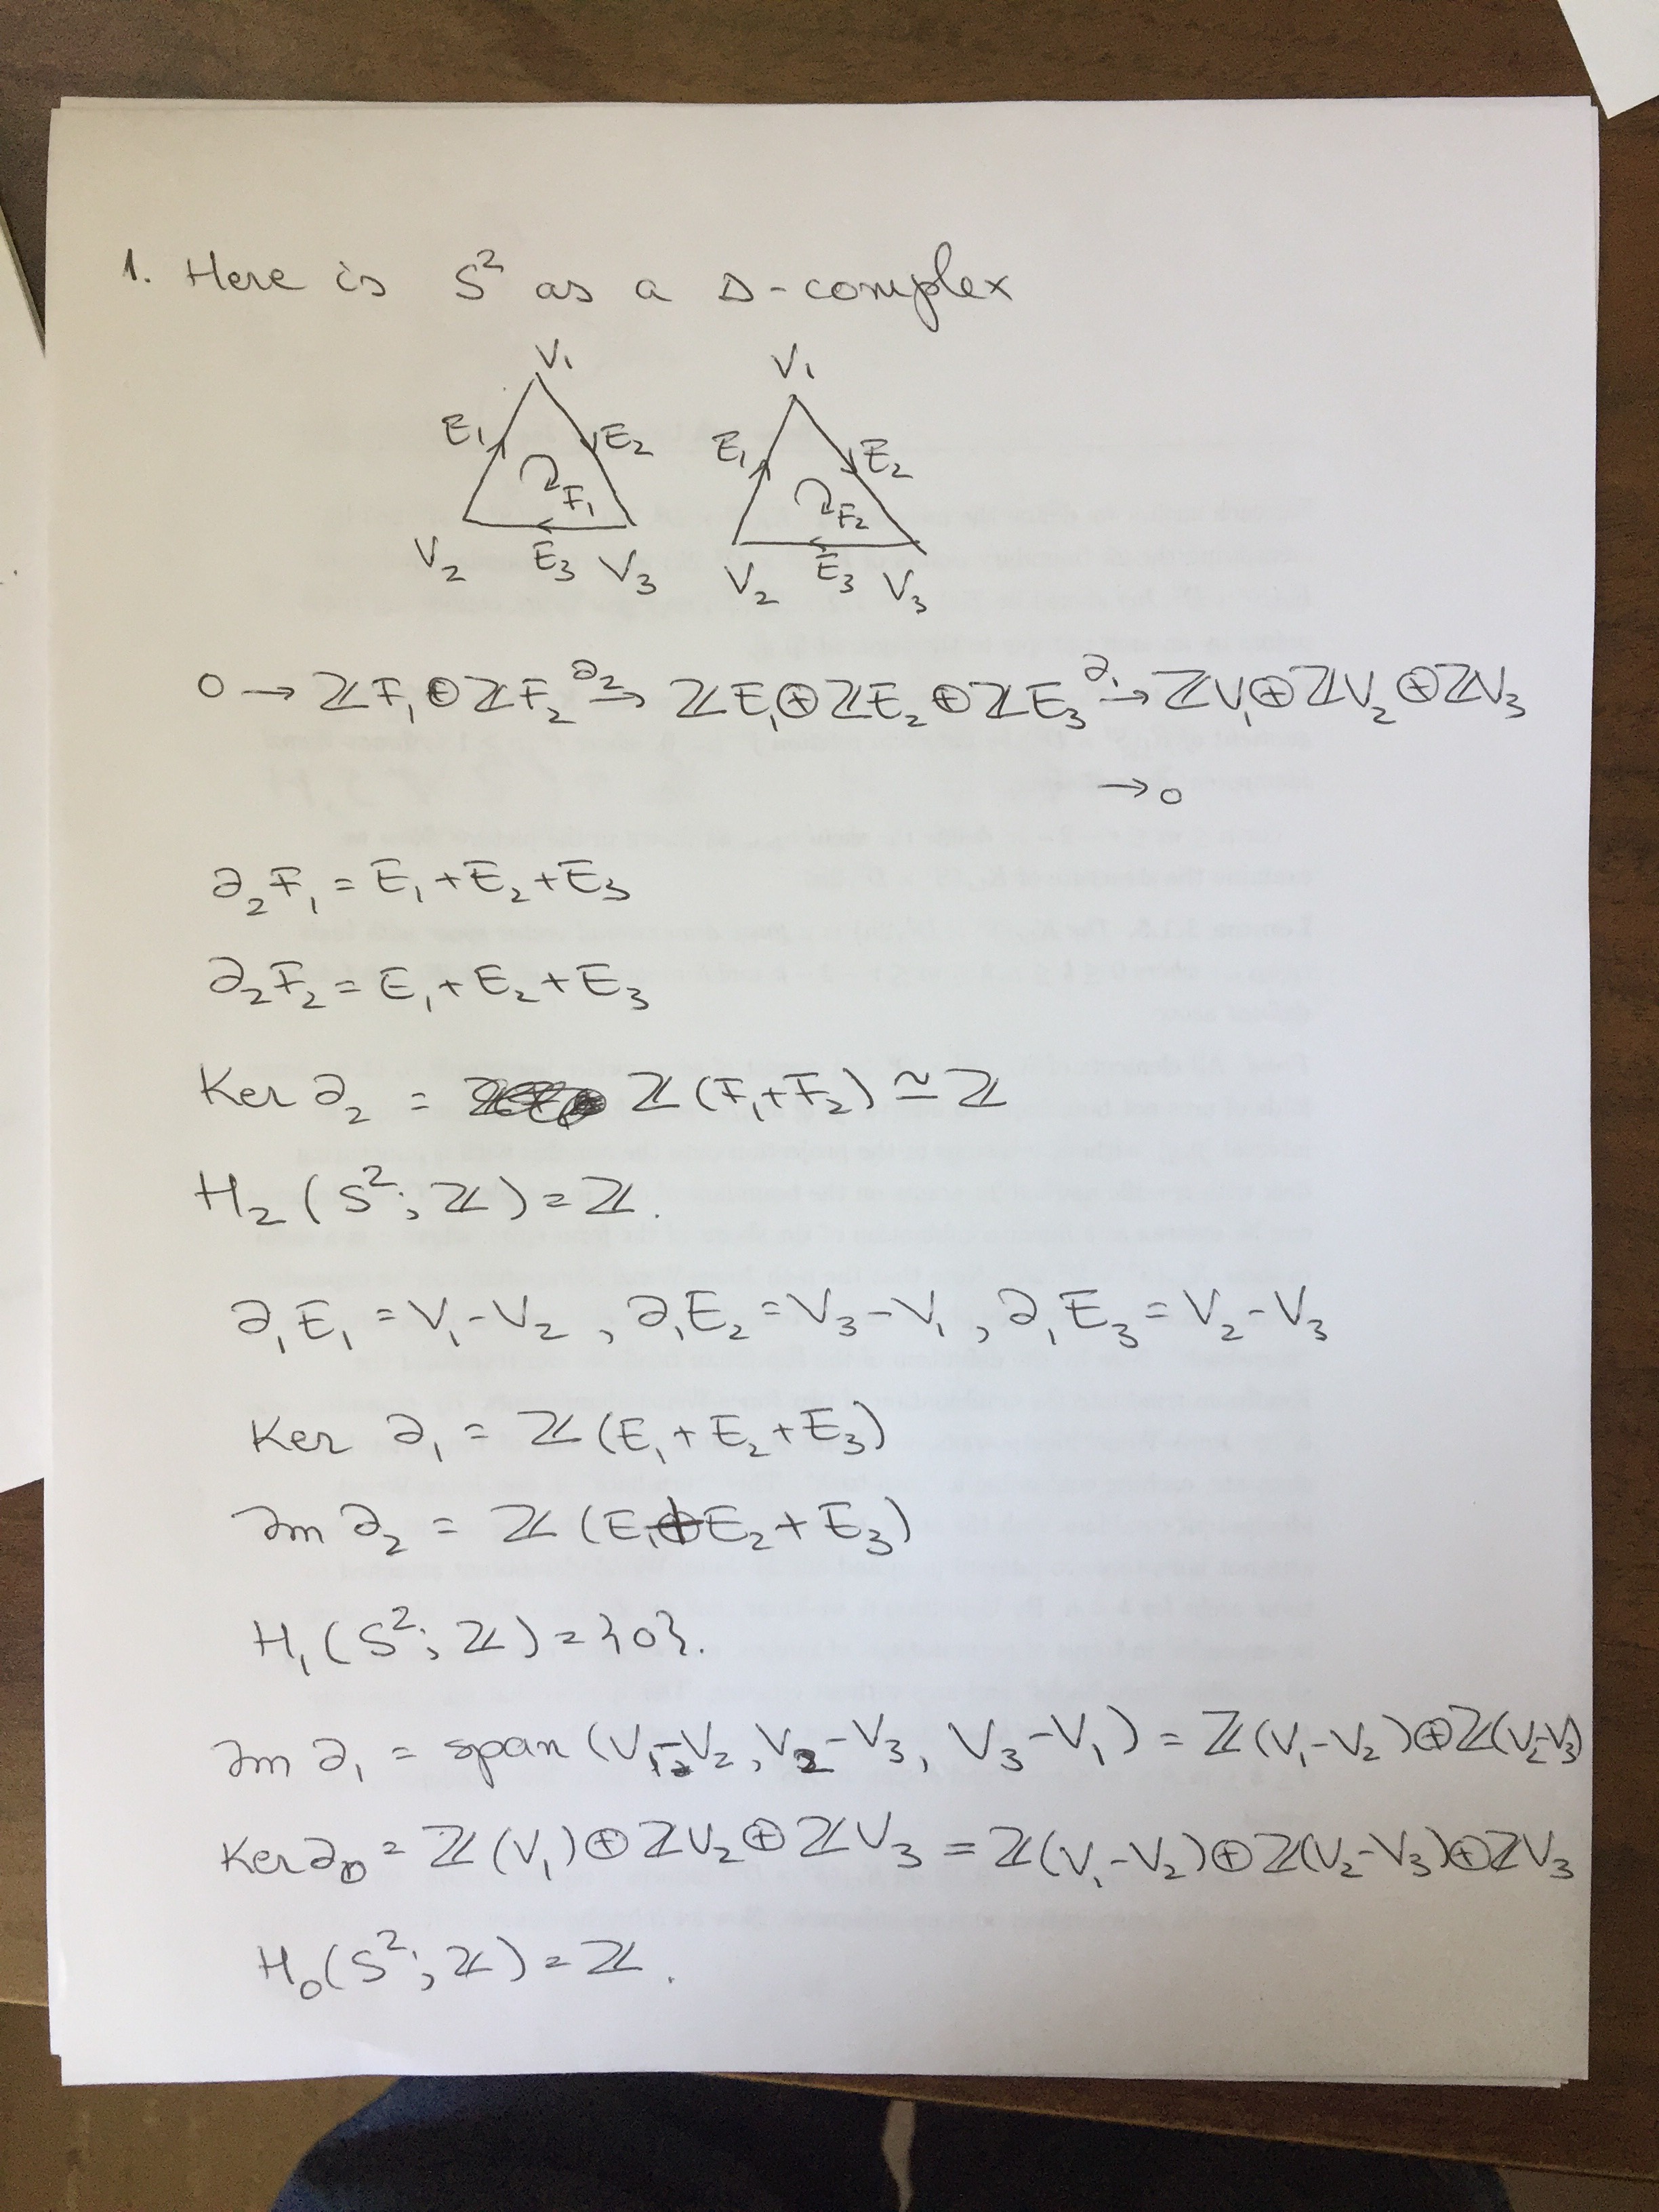 1. Here is S² as a Δ-complex
V₁ V₁
E₁ E₂ E₁ E₂
F₁ F₂
V₂ E₃ V₃ V₂ E₃ V₃
0 → ℤF₁⊕ℤF₂ →^∂₂ ℤE₁⊕ℤE₂⊕ℤE₃ →^∂₁ ℤV₁⊕ℤV₂⊕ℤV₃
→ 0
∂₂F₁ = E₁+E₂+E₃
∂₂F₂ = E₁+E₂+E₃
Ker ∂₂ = ℤ(F₁+F₂) ≃ ℤ
H₂(S²; ℤ) = ℤ.
∂₁E₁ = V₁-V₂, ∂₁E₂ = V₃-V₁, ∂₁E₃ = V₂-V₃
Ker ∂₁ = ℤ(E₁+E₂+E₃)
Im ∂₂ = ℤ(E₁+E₂+E₃)
H₁(S²; ℤ) = {0}.
Im ∂₁ = span(V₁-V₂, V₂-V₃, V₃-V₁) = ℤ(V₁-V₂)⊕ℤ(V₂-V₃)
Ker ∂₀ = ℤ(V₁)⊕ℤV₂⊕ℤV₃ = ℤ(V₁-V₂)⊕ℤ(V₂-V₃)⊕ℤV₃
H₀(S²; ℤ) = ℤ.